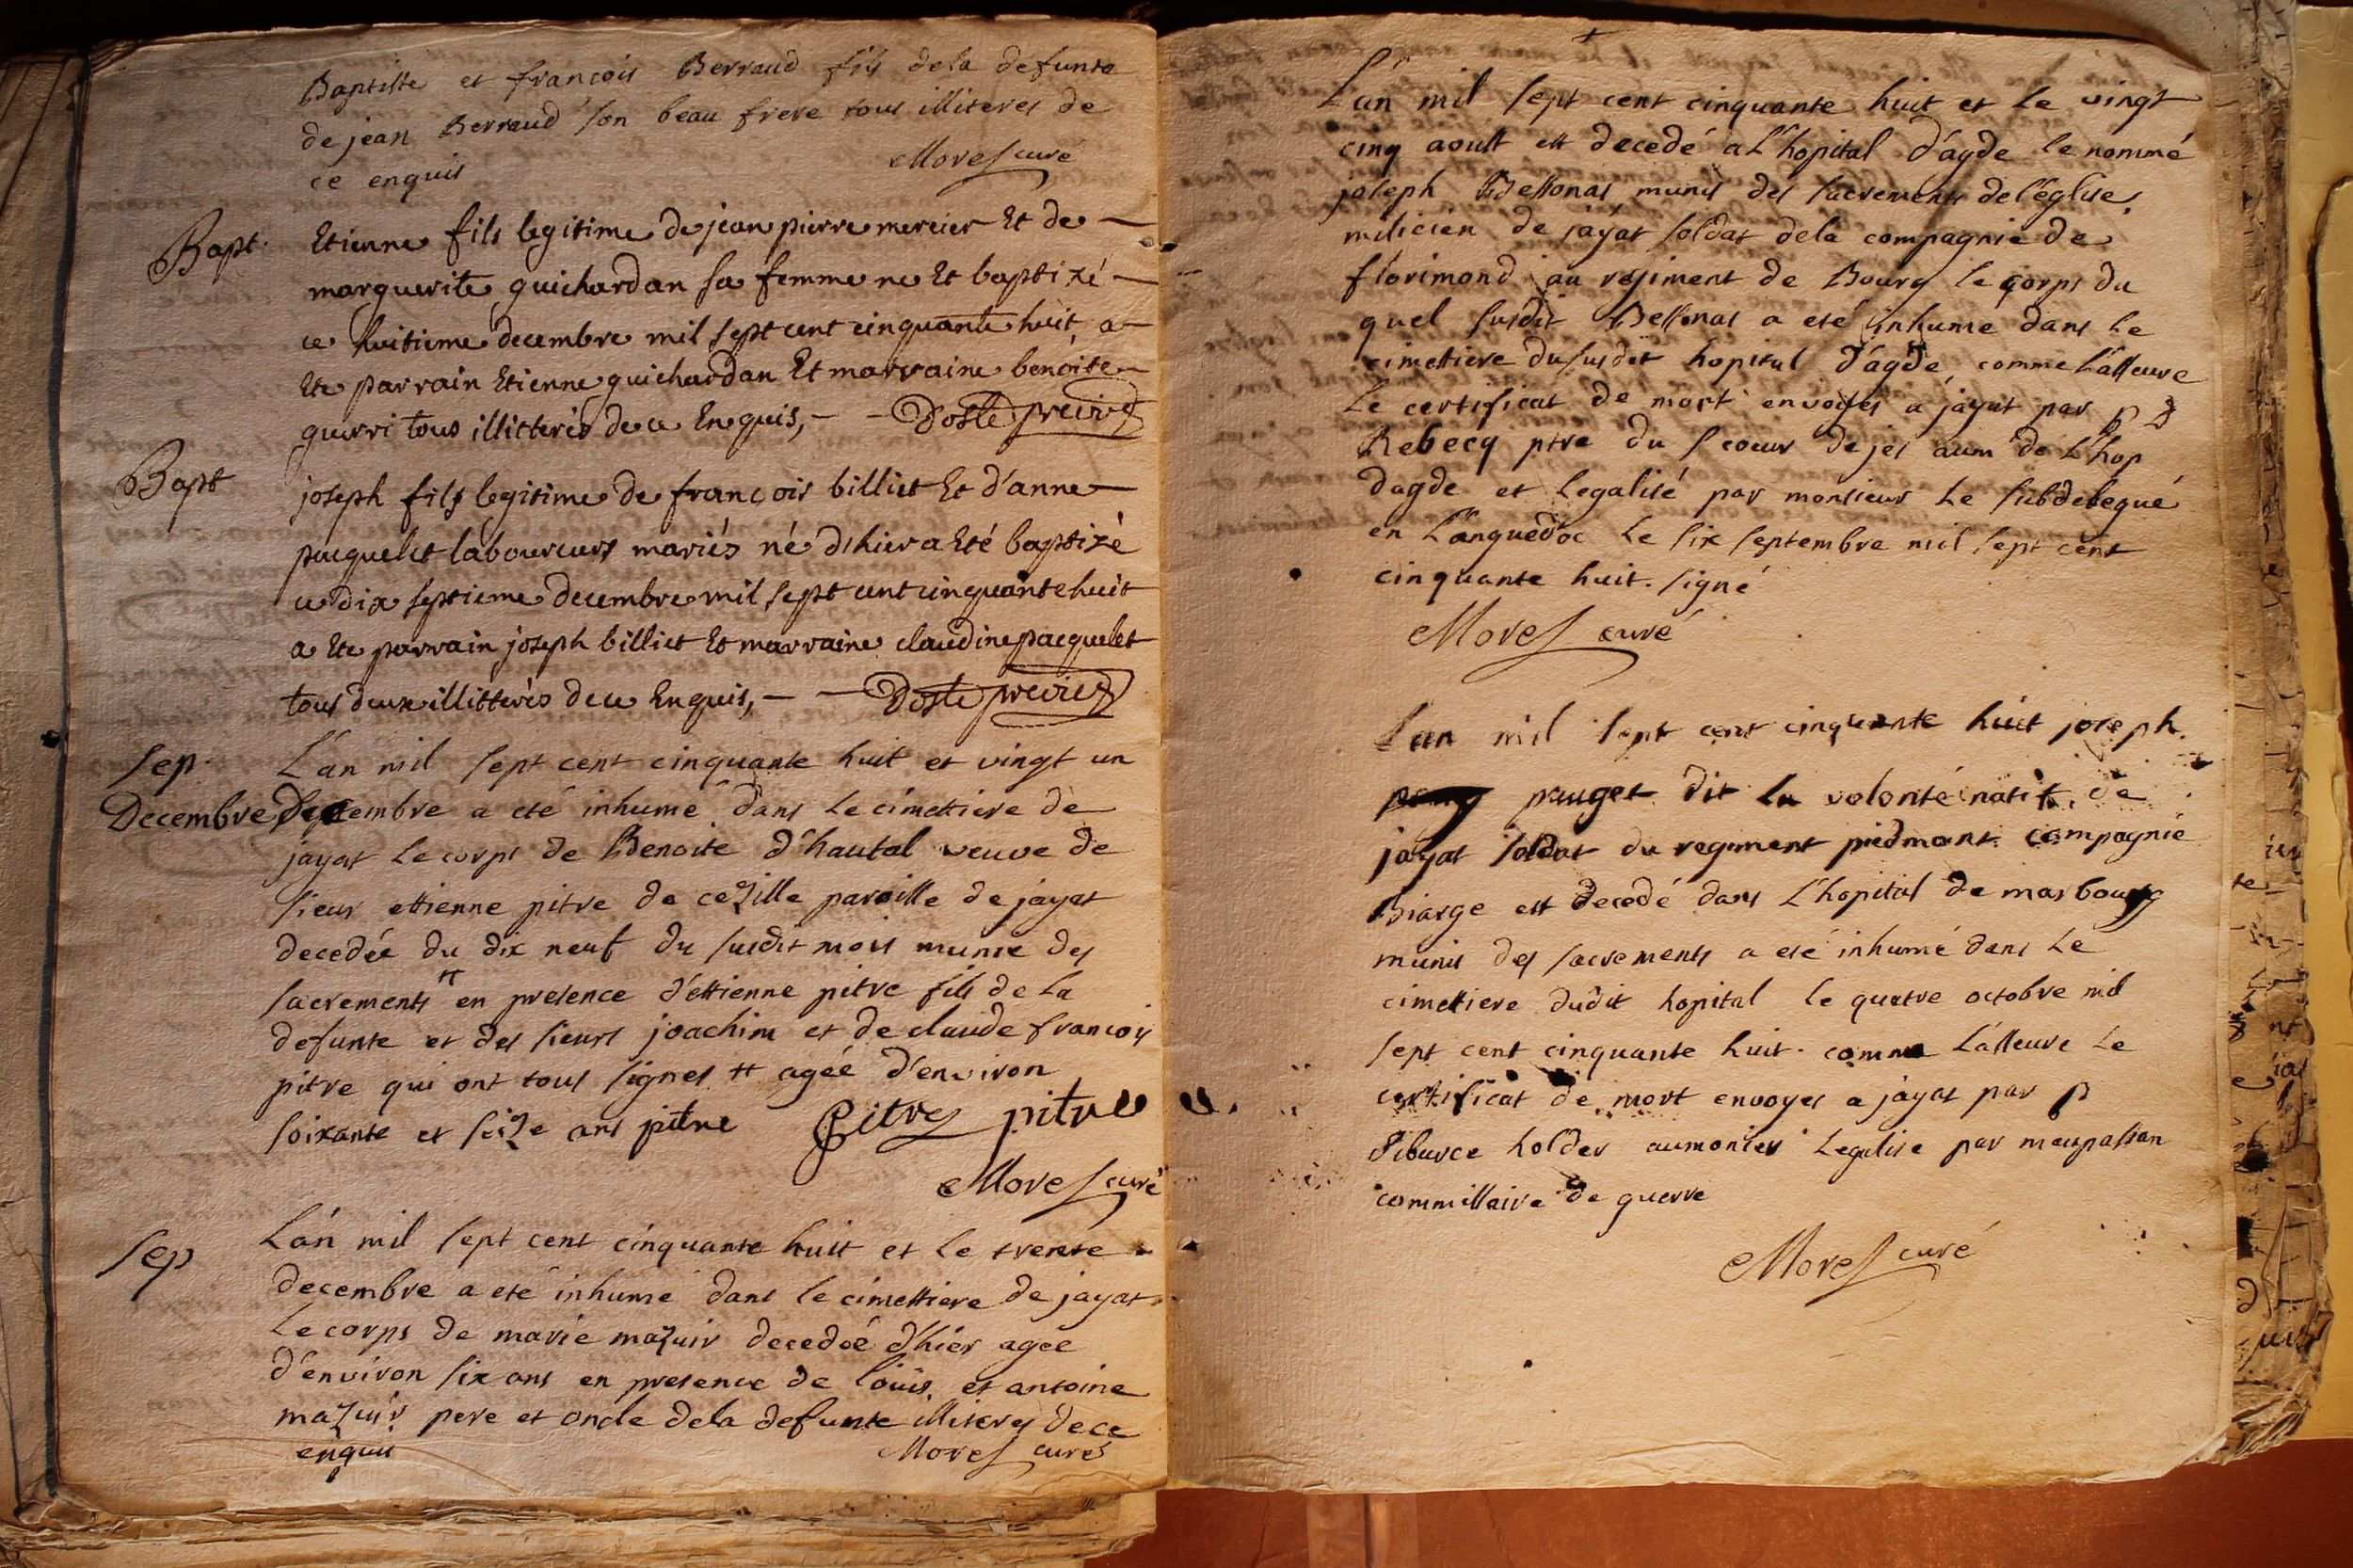 Baptiste et francois Berraud fils dela defunte
de jean Berraud son beau frere tous illiteres de
ce enquis Morel curé
Bapt. Etienne fils legitime de jean pierre mercier Et de
marguerite guichardan sa femme ne Et baptizé
ce huitieme decembre mil sept cent cinquante huit a
Ete parrain Etienne guichardan Et marraine benoite
gurri tous illitterés de ce Enquis,
Bapt joseph fils legitime de francois billiet Et d'anne
pacquelet laboureurs mariés né d'hier a Eté baptizé
ce dix septieme decembre mil sept cent cinquante huit
a Ete parrain joseph billiet Et marraine claudine pacquelet
tous deux illitterés de ce Enquis,
sep. L'an mil sept cent cinquante huit et vingt un
Decembre decembre a eté inhumé dans le cimettiere de
jayat le corps de Benoite d'hautal veuve de
sieur ettienne pitre de cezille paroisse de jayat
decedée du dix neuf du susdit mois munie des
sacrements # en presence d'ettienne pitre fils de la
defunte et des sieurs joachim et de claude francois
pitre qui ont tous signes # agée d'environ
soixante et seize ans pitre Pitre pitre
Morel curé
sep L'an mil sept cent cinquante huit et le trente
decembre a eté inhumé dans le cimettiere de jayat
le corps de marie mazuir decedée d'hier agée
d'environ six ans en presence de louis et antoine
mazuir pere et oncle dela defunte illiterés de ce
enquis Morel curé
L'an mil sept cent cinquante huit et le vingt
cinq aoust est decedé a l'hopital d'agde le nommé
joseph Bellonat munis des sacrements de l'église
milicien de jayat soldat dela compagnie de
florimond au regiment de Bourg le corps du
quel susdit Bellonat a eté inhumé dans le
cimettiere du susdit hopital d'agde, comme l'asseure
le certificat de mort envoyés a jayat par p
Rebecq ptre du s coeur de jes aum de l'hop
dagde et legalisé par monsieur le subdelegué
en languedoc le six septembre mil sept cent
cinquante huit. signé
Morel curé
L'an mil sept cent cinquante huit joseph
pauget dit la volonté natif de
jayat soldat du regiment piedmont compagnie
Biarge est decedé dans l'hopital de marbourg
munis des sacrements a eté inhumé dans le
cimettiere dudit hopital le quatre octobre mil
sept cent cinquante huit. comme l'asseure le
certificat de mort envoyes a jayat par p
tiburce holder aumonier legalise par maupassan
commissaire de guerre
Morel curé